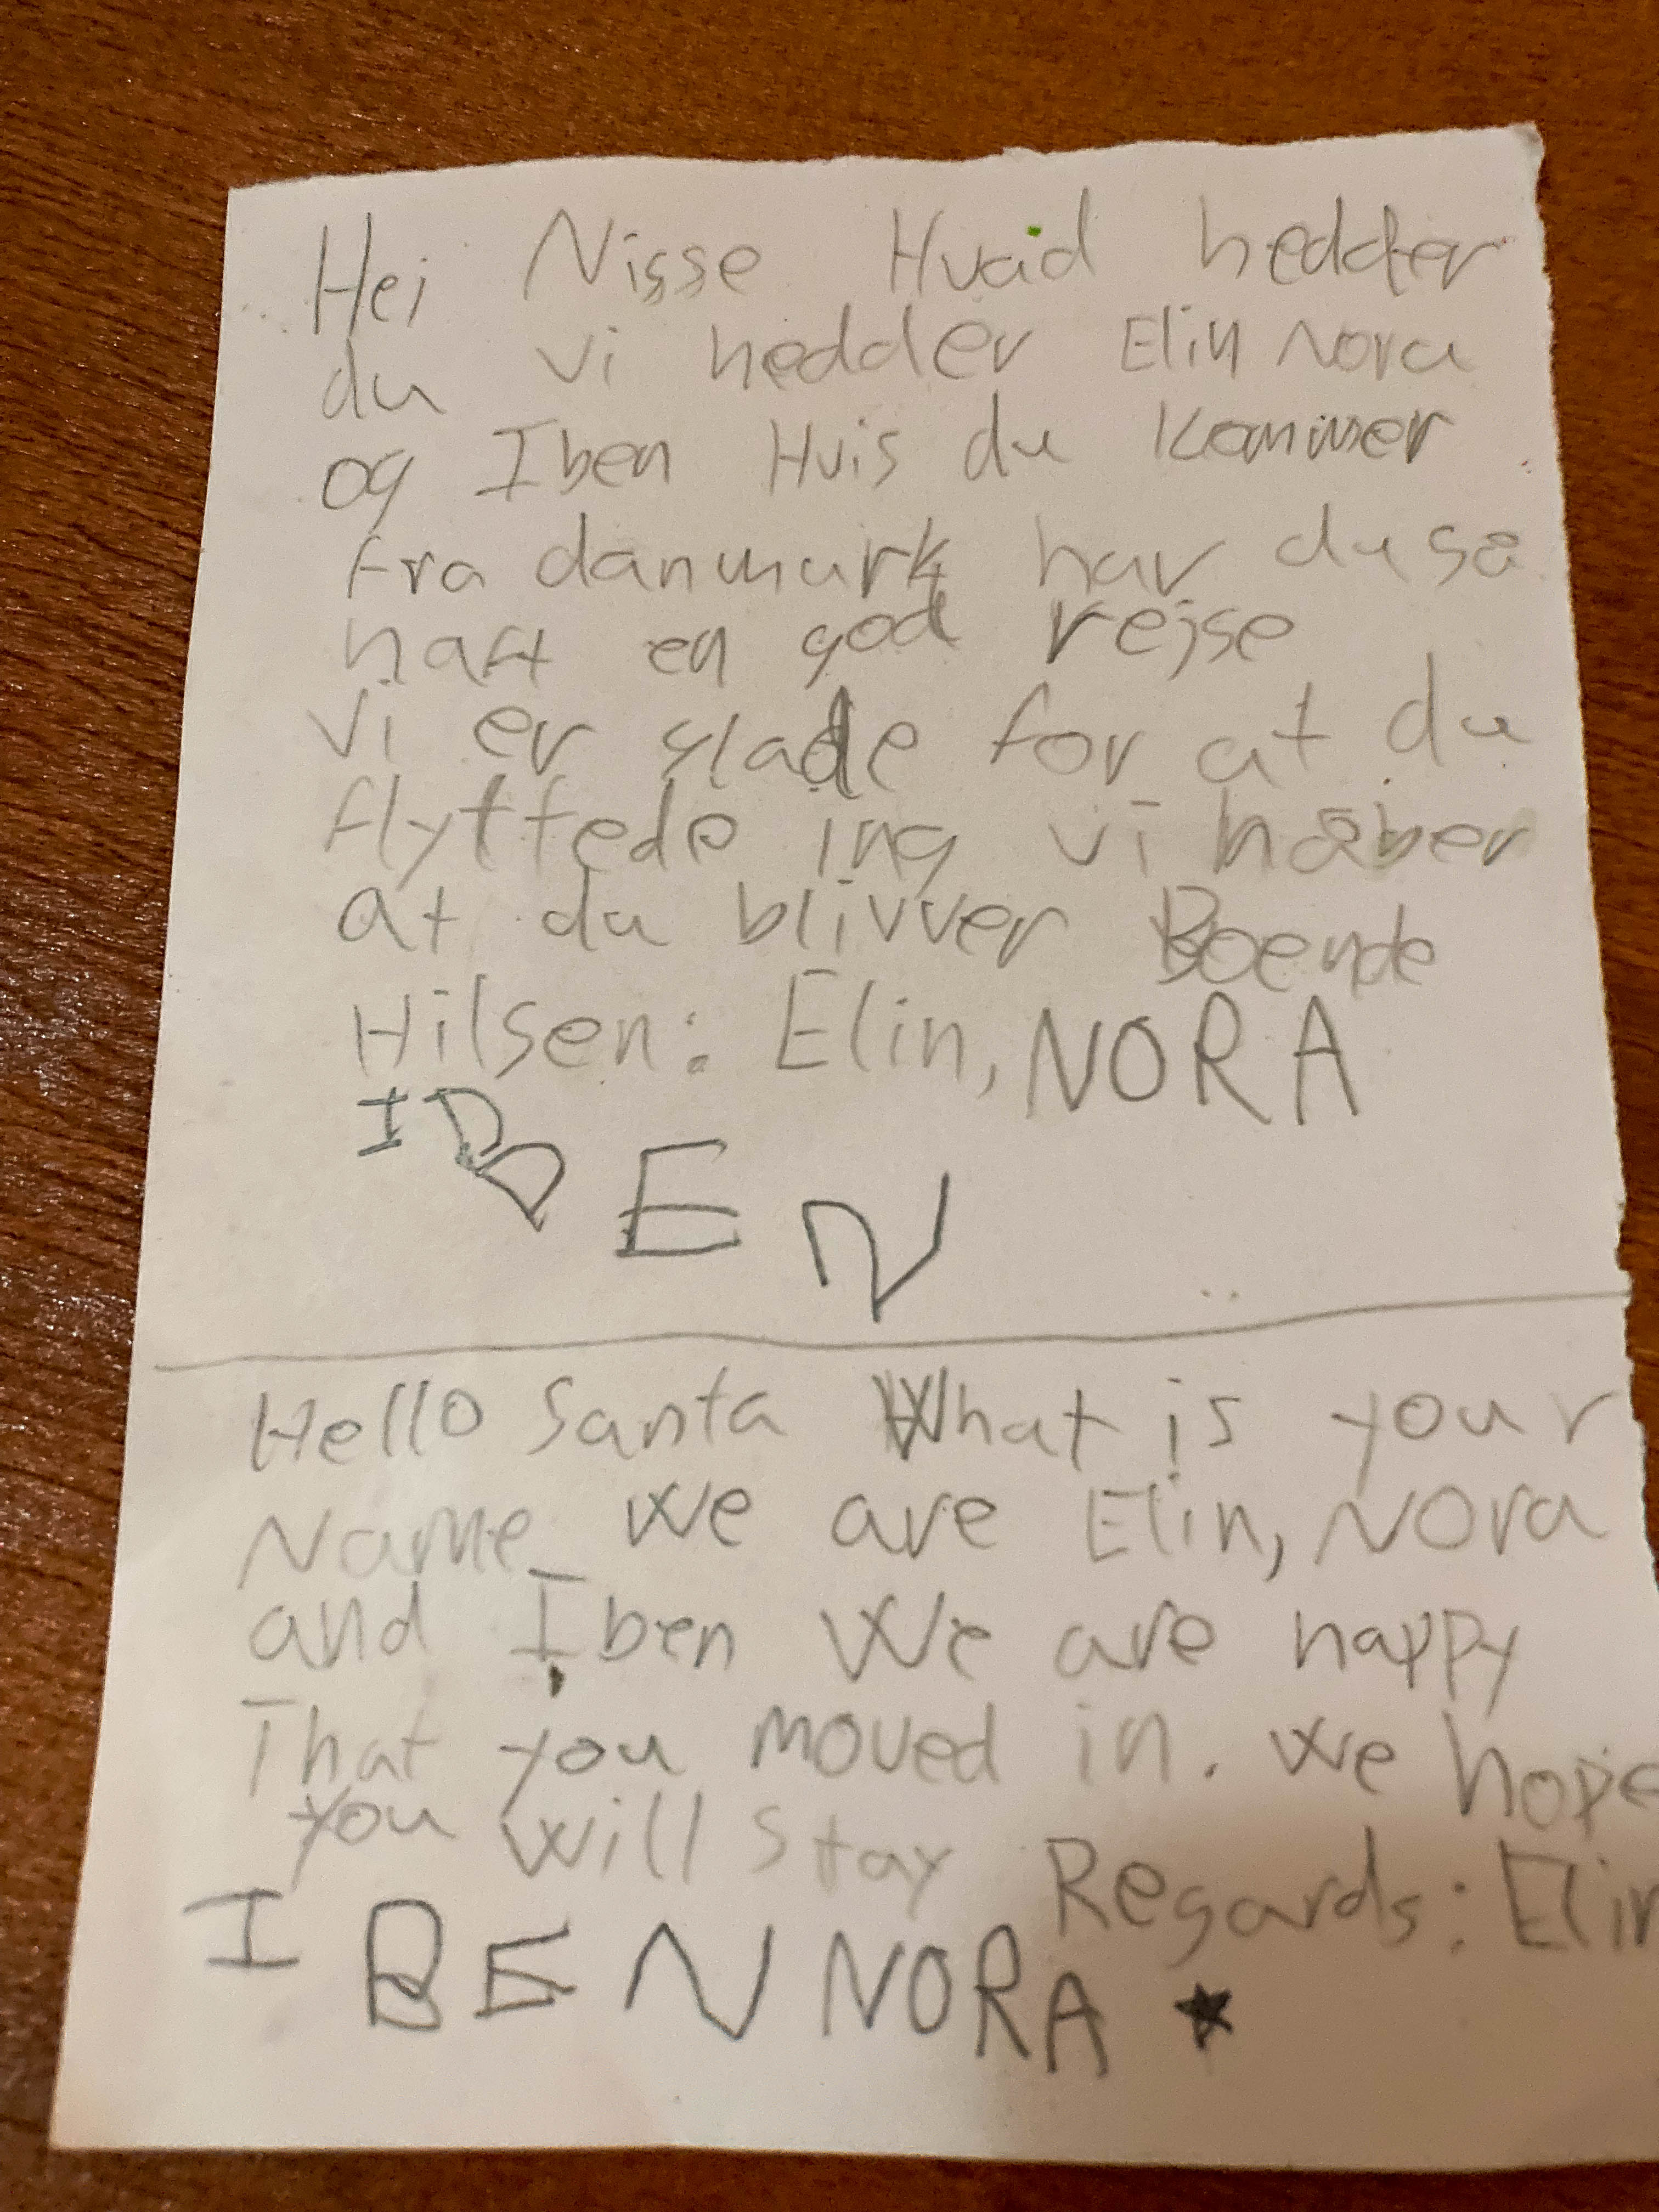 Hej Nisse Hvad hedder
du vi hedder Elin Nora
og Iben Hvis du kommer
fra danmark har du så
haft en god rejse
Vi er glade for at du
flyttede ing vi håber
at du blivver Boende
Hilsen: Elin, NORA
IBEN
Hello Santa What is your
Name We are Elin, Nora
and Iben We are happy
That you moved in. We hope
you will stay Regards: Elin
IBEN NORA